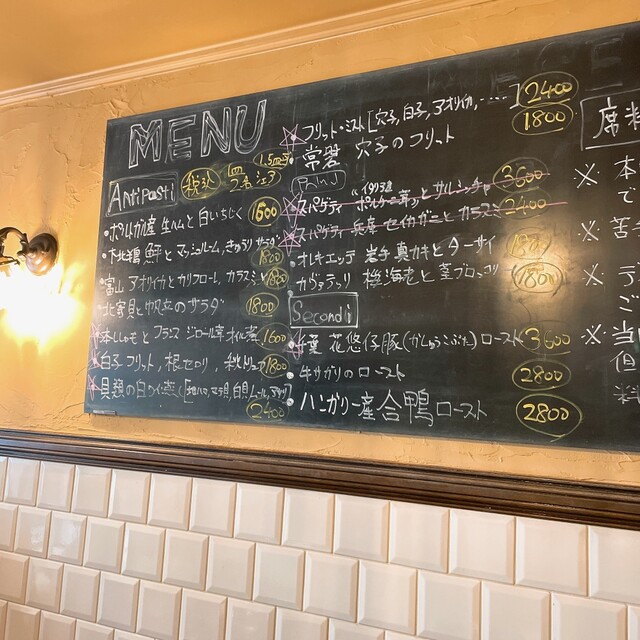 MENU
税込
Antipasti
・ポルトガル産 生ハムと白いちじく 1600
・下北鶏 とマッシュルーム、きゅうり サラダ 1800
・富山 アオリイカとカリフロール、カラスミ 1800
・北寄貝と帆立のサラダ 1800
本ししゃもと フランス ジロール茸 オイル煮 1600
白子 フリット、根セロリ、秋トリュフ 1800
貝類の白ワイン蒸し 2400
フリット・ミスト[穴子, 白子, アオリイカ, ‥‥] 2400
・常磐 穴子のフリット 1800
スパゲティ "イタリア産ポルチーニ茸"とサルシッチャ 3600
スパゲティ 兵庫 セイカガニと カラスミ 2400
・オレキエッテ 岩手 真カキと ターサイ
・カヴァテッリ 桜海老と 茎ブロッコリ 1800
Secondi
千葉 花悠仔豚(かゆうこぶた)ロースト 3600
・牛サガリの ロースト 2800
・ハンガリー産 合鴨 ロースト 2800
席料
※ 本
で
※ 苦手
※
ご
※ 当
但
料